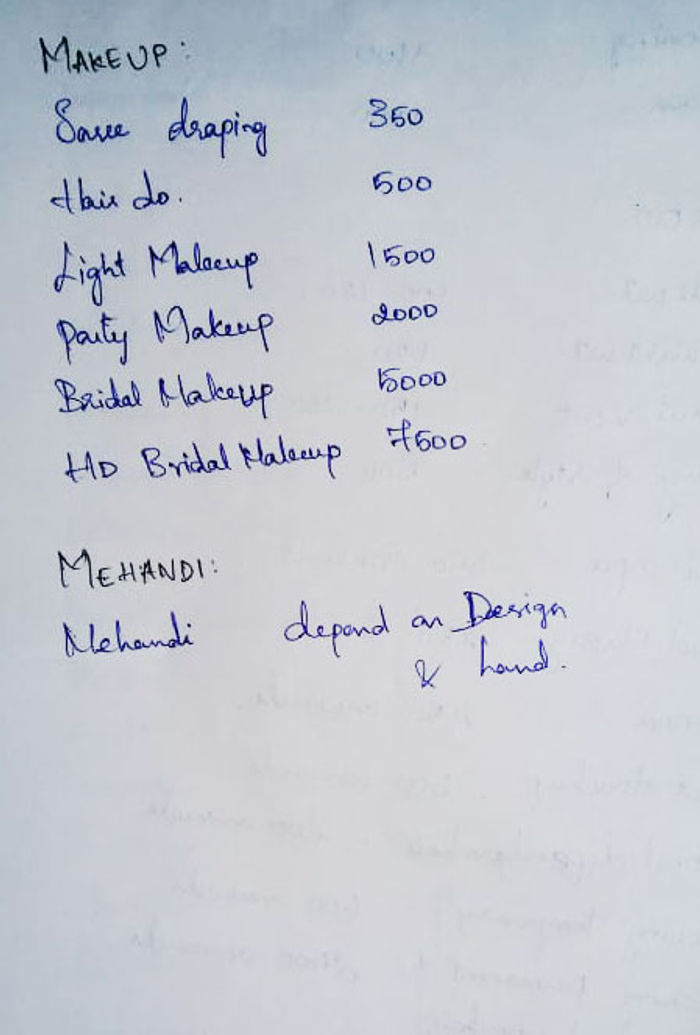 MAKEUP:
Saree draping 350
Hair do. 500
Light Makeup 1500
Party Makeup 2000
Bridal Makeup 15000
HD Bridal Makeup 7500
MEHANDI:
Mehandi depend on Design
& hand.